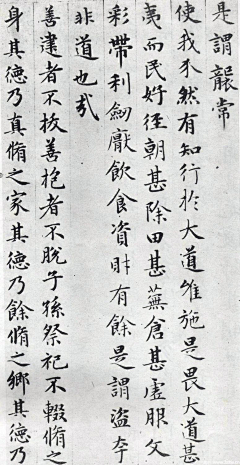 是謂襲常
使我介然有知行於大道唯施是畏大道甚
夷而民好徑朝甚除田甚蕪倉甚虛服文
彩帶利劍厭飲食資財有餘是謂盜夸
非道也哉
善建者不拔善抱者不脫子孫祭祀不輟脩之
身其德乃真脩之家其德乃餘脩之鄉其德乃